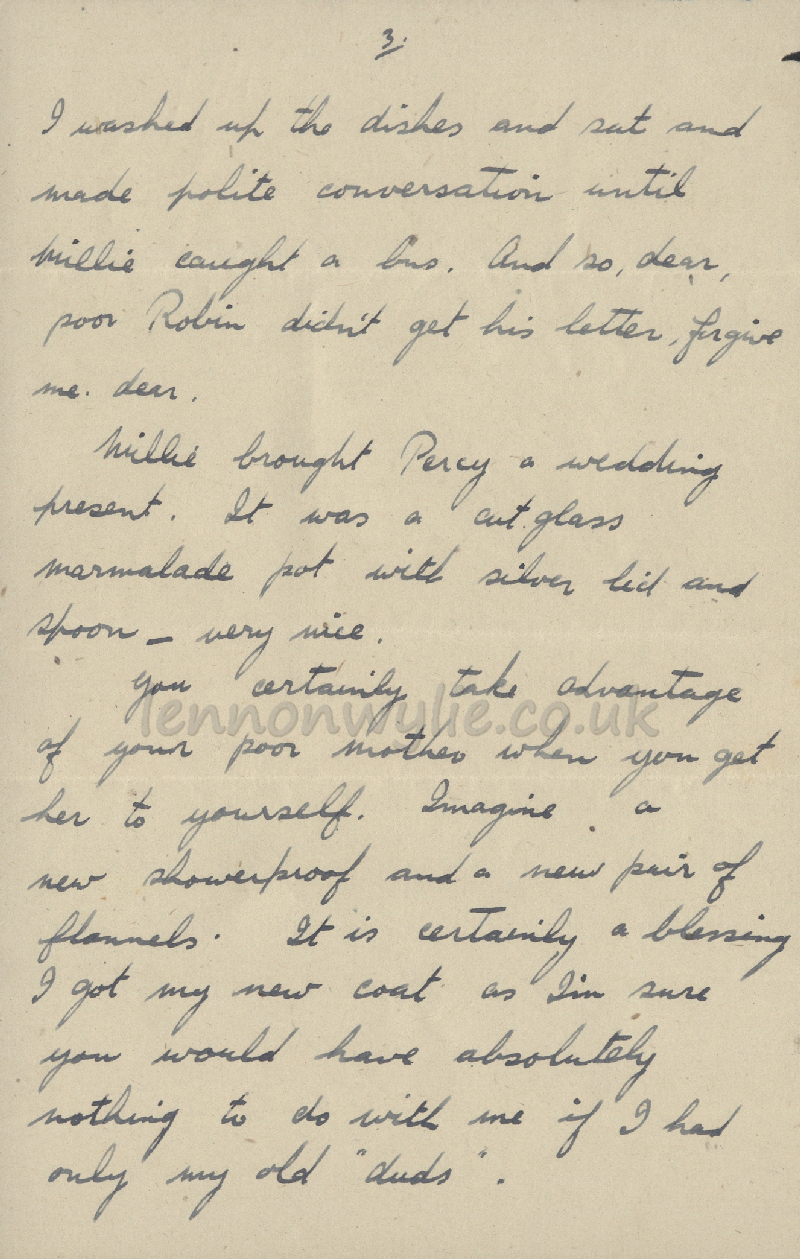 3.
I washed up the dishes and sat and
made polite conversation until
Millie caught a bus. And so, dear,
poor Robin didn't get his letter, forgive
me. dear.
Millie brought Percy a wedding
present. It was a cut glass
marmalade pot with silver lid and
spoon – very nice.
You certainly take advantage
lennonwylie.co.uk
of your poor mother when you get
her to yourself. Imagine a
new showerproof and a new pair of
flannels. It is certainly a blessing
I got my new coat as I'm sure
you would have absolutely
nothing to do with me if I had
only my old "duds".